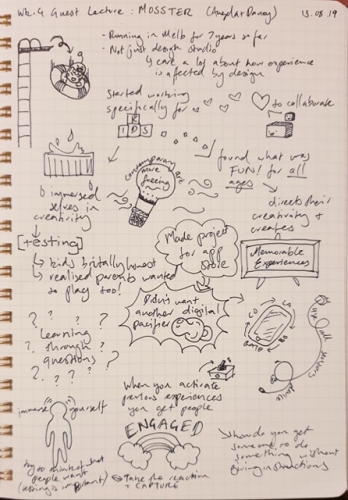 Wk.4 Guest Lecture : MOSSTER (Angela + Danny)
13.08.19
• Running in Melb for 7 years so far
• Not just design studio
↳ care a lot about how experience
is affected by design
Started working
specifically for
KIDS
to collaborate
contemporary art
more
freeing
found what was
FUN! for all
ages
immersed
selves in
creativity
directs their
creativity +
creates
[testing]
↳ kids brutally honest
↳ realised parents wanted
to play too!
Made project
for app
store
Memorable
Experiences
Didn't want
another digital
pacifier
? ? ?
? Learning ?
? through ?
questions
? ? ? ?
When you activate
experiences
you get people
ENGAGED
immerse yourself
try to think of what
people want
(testing is important)
Take the reaction
+ CAPTURE
→ how do you get
someone to do
something without
giving instructions